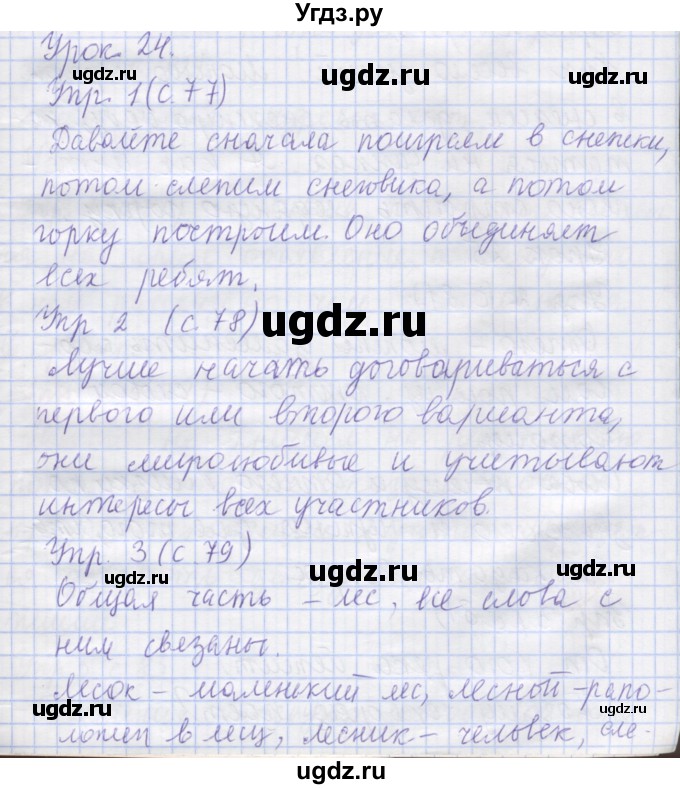 Угдз.ру
Урок 24.
ugdz.ru ugdz.ru ugdz.ru
Упр. 1 (с. 77)
Давайте сначала поиграем в снежки,
потом слепим снеговика, а потом
горку построим. Оно объединяет
всех ребят.
Упр 2 (с. 78)
ugdz.ru
Лучше начать договариваться с
первого или второго варианта,
они миролюбивые и учитывают
интересы всех участников.
Упр. 3 (с. 79)
ugdz.ru ugdz.ru ugdz.ru
Общая часть – лес, все слова с
ним связаны.
Лесок – маленький лес, лесной –
ugdz.ru ugdz.ru
в лесу, лесник – человек, сле-
ugdz.ru